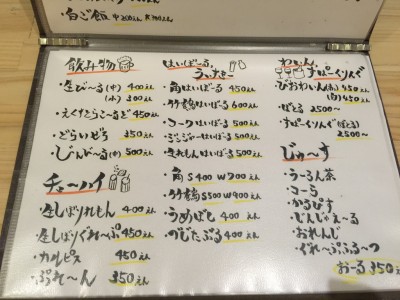 白ご飯 中200えん 大250えん
飲み物
・生び〜る(中) 400えん
(小) 300えん
・えくすとらこーるど 450えん
・どらいぜろ 350えん
・じんび〜る(中) 500えん
チューハイ
・生しぼりれもん 400えん
・生しぼりぐれーぷ 450えん
・カルピス 450えん
・ぷれ〜ん 350えん
はいぼーる、
うぃすきー
・角はいぼーる 450えん
・竹鶴はいぼーる 600えん
・コークはいぼーる 500えん
・ジンジャーはいぼーる 500えん
・生れもんはいぼーる 500えん
・角 S400 W700えん
・竹鶴 S500 W900えん
・うめぼし 400えん
・のじたぷる 400えん
わいん、
すぱーくりんぐ
・びおわいん(赤) 450えん
(白) 450えん
・ぼとる 2500〜
・すぱーくりんぐ(ぼとる)
2500〜
じゅーす
・うーろん茶
・コーラ
・かるぴす
・じんじゃえ〜る
・おれんじ
・ぐれ〜ぷふる〜つ
おーる350えん